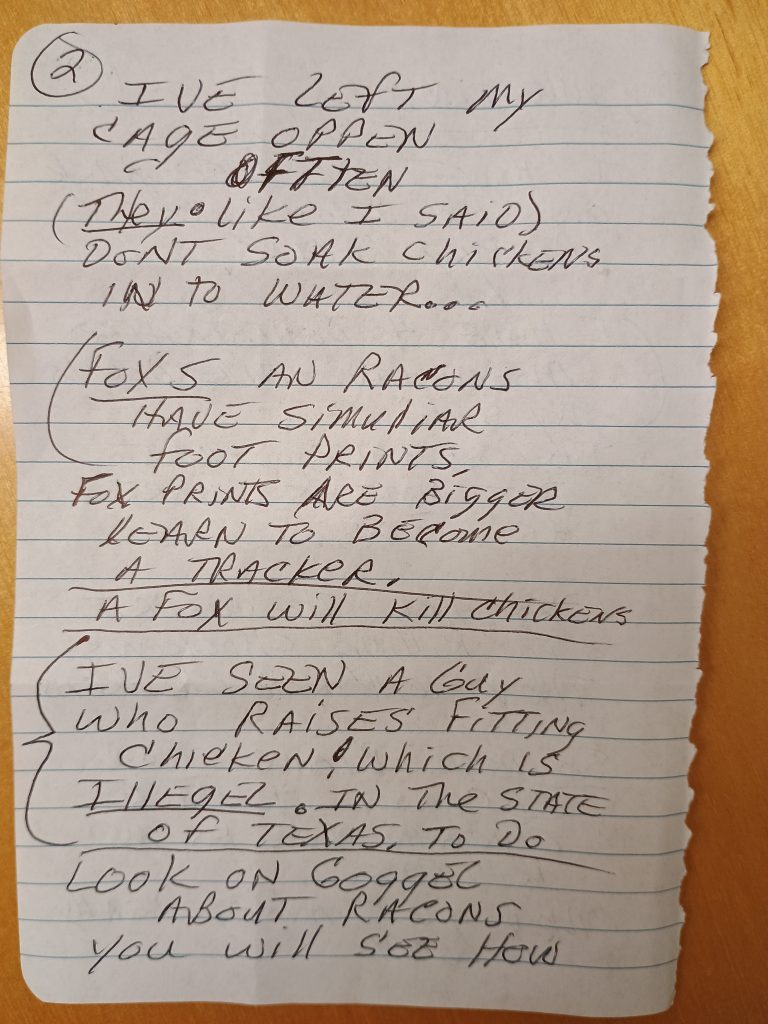 2
I'VE LEFT MY
CAGE OPPEN
OFTTEN
(They • like I SAID)
DONT SOAK ChickENS
IN to WATER...
FOX S AN RACONS
HAVE SIMULIAR
FOOT PRINTS,
FOX PRINTS ARE BIGGER
LEARN TO BECOME
A TRACKER.
A FOX will Kill chickENS
I'VE SEEN A GUY
Who RAISES FITTING
ChickEN, Which is
IllEGEL. IN The STATE
OF TEXAS. TO DO
LOOK ON GOGGEL
ABOUT RACONS
you will SEE HOW